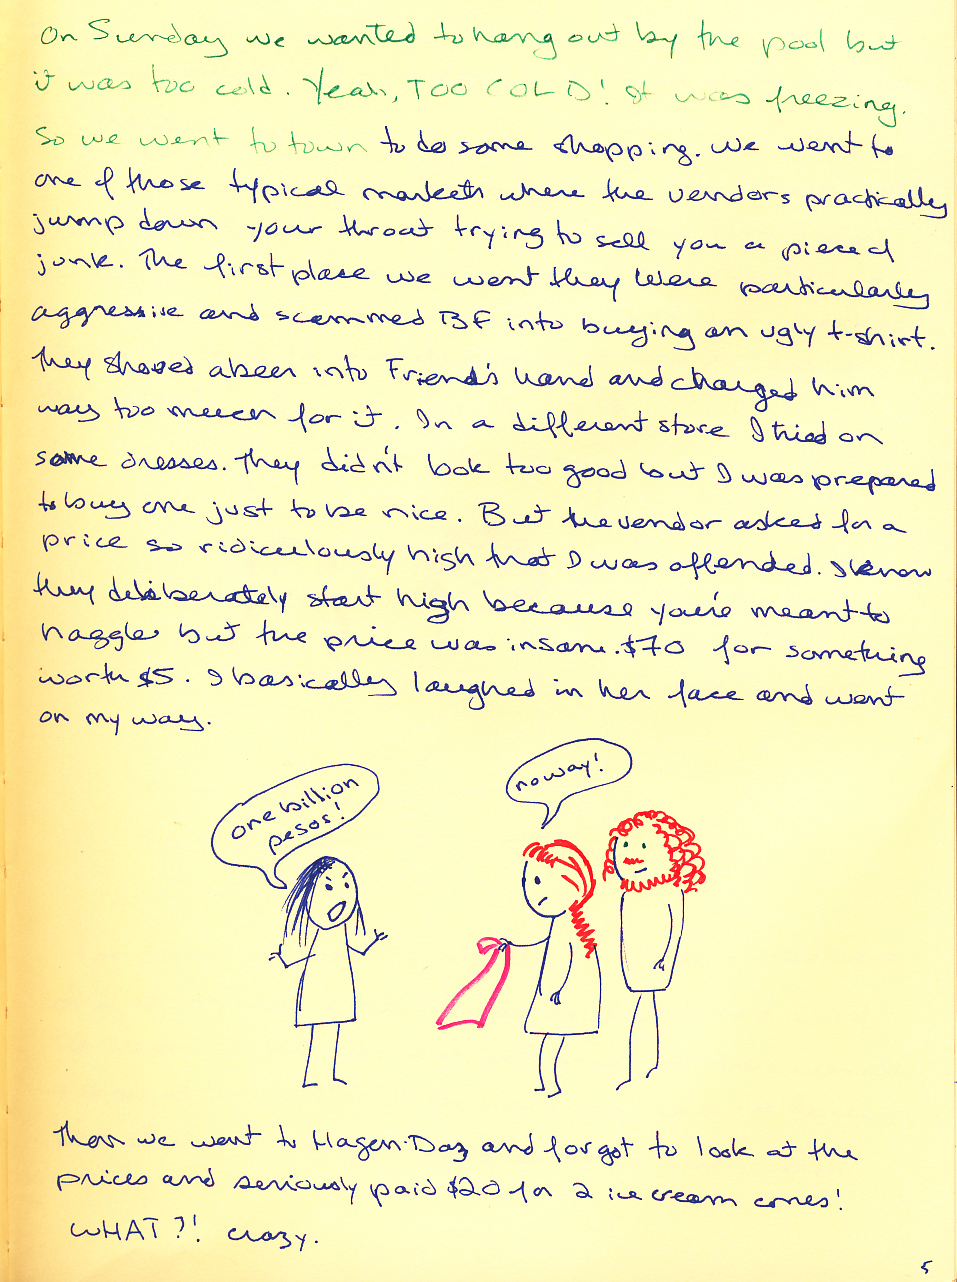 On Sunday we wanted to hang out by the pool but
it was too cold. Yeah, TOO COLD! It was freezing.
So we went to town to do some shopping. We went to
one of those typical markets where the vendors practically
jump down your throat trying to sell you a piece of
junk. The first place we went they were particularly
aggressive and scammed BF into buying an ugly t-shirt.
They shoved a beer into Friend's hand and charged him
way too much for it. In a different store I tried on
some dresses. They didn't look too good but I was prepared
to buy one just to be nice. But the vendor asked for a
price so ridiculously high that I was offended. I know
they deliberately start high because you're meant to
haggle but the price was insane. $70 for something
worth $5. I basically laughed in her face and went
on my way.
one billion
pesos!
no way!
Then we went to Hagen-Daz and forgot to look at the
prices and seriously paid $20 for 2 ice cream cones!
WHAT?! crazy.
5